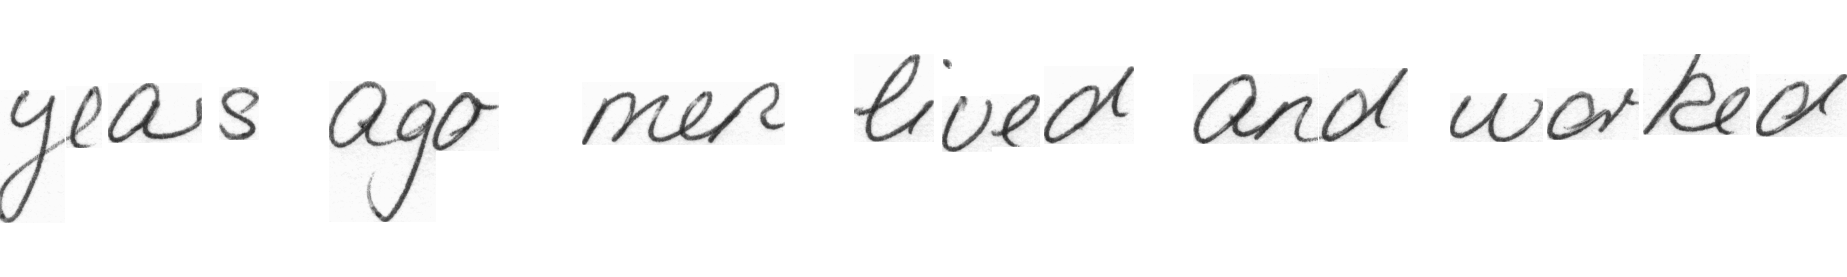 years ago men lived and worked